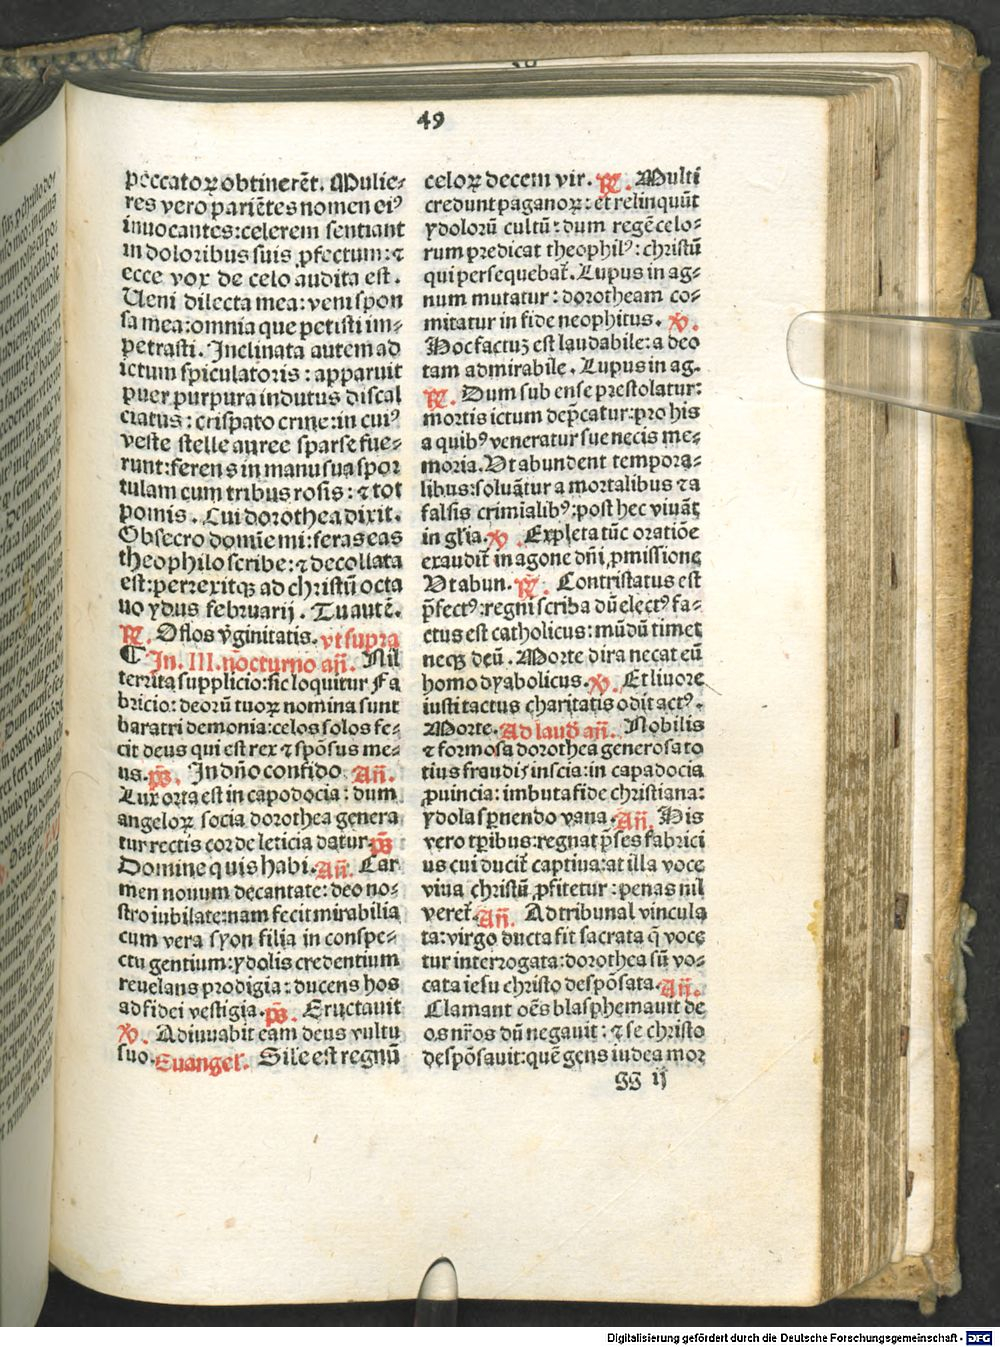 49
peccatoꝝ obtinerēt. Mulie⸗
res vero pariētes nomen eiꝰ
inuocantes: celerem sentiant
in doloribus suis ꝓfectum: ⁊
ecce vox de celo audita est.
Ueni dilecta mea: veni spon
sa mea: omnia que petisti im⸗
petrasti. Inclinata autem ad
ictum spiculatoris: apparuit
puer purpura indutus discal
ciatus: crispato crine: in cuiꝰ
veste stelle auree sparse fue⸗
runt: ferens in manu sua spor
tulam cum tribus rosis: ⁊ tot
pomis. Cui dorothea dixit.
Obsecro domine mi: feras eas
theophilo scribe: ⁊ decollata
est: perrexitqꝫ ad christū octa
uo ydus februarij. Tu autē.
℟. O flos v̄ginitatis. vt supra
¶ In. III. nocturno añ. Nil
territa supplicio: sic loquitur Fa
bricio: deorū tuoꝝ nomina sunt
baratri demonia: celos solos fe⸗
cit deus qui est rex ⁊ spōsus me⸗
us. p̄s. In dño confido. Añ.
Lux orta est in capodocia: dum
angeloꝝ socia dorothea genera
tur rectis corde leticia datur. p̄s
Domine quis habi. Añ. Car
men nouum decantate: deo no⸗
stro iubilate: nam fecit mirabilia
cum vera syon filia in conspe⸗
ctu gentium: ydolis credentium
reuelans prodigia: ducens hos
ad fidei vestigia. p̄s. Eructauit
℣. Adiuuabit eam deus vultu
suo. Euangel. Sile est regnū
celoꝝ decem vir. ℟. Multi
credunt paganoꝝ: et relinquūt
ydolorū cultū: dum regē celo⸗
rum predicat theophilꝰ: christū
qui persequebat̄. Lupus in ag⸗
num mutatur: dorotheam co⸗
mitatur in fide neophitus. ℣.
Hoc factuꝫ est laudabile: a deo
tam admirabile. Lupus in ag.
℟. Dum sub ense prestolatur:
mortis ictum dep̄catur: pro his
a quibꝰ veneratur sue necis me⸗
moria. Ut abundent tempora⸗
libus: soluāt̄ur a mortalibus ⁊ a
falsis crimialibꝰ: post hec viuāt
in gl̄ia. ℣. Expleta tūc oratiōe
exaudit̄ in agone dñi ꝓmissione
Ut abun. ℟. Contristatus est
p̄fectꝰ: regni scriba dū electꝰ fa⸗
ctus est catholicus: mūdū timet
necqꝫ deū. Morte dira necat eū
homo dyabolicus. ℣. Et liuore
iusti tactus charitatis odit actꝰ.
Morte. Ad laud̄ añ. Nobilis
⁊ formosa dorothea generosa to
tius fraudis inscia: in capadocia
ꝓuincia: imbuta fide christiana:
ydola sp̄nendo vana. Añ. His
vero tp̄ibus: regnat p̄ses fabrici
us cui ducit̄ captiua: at illa voce
viua christū ꝓfitetur: penas nil
veret̄. Añ. Ad tribunal vincula
ta: virgo ducta fit sacrata q̄ voce
tur interrogata: dorothea sū vo⸗
cata iesu christo despōsata. Añ.
Clamant oēs blasphemauit de
os nr̄os dū negauit: ⁊ se christo
despōsauit: quē gens iudea mor
gg ij
Digitalisierung gefördert durch die Deutsche Forschungsgemeinschaft - DFG